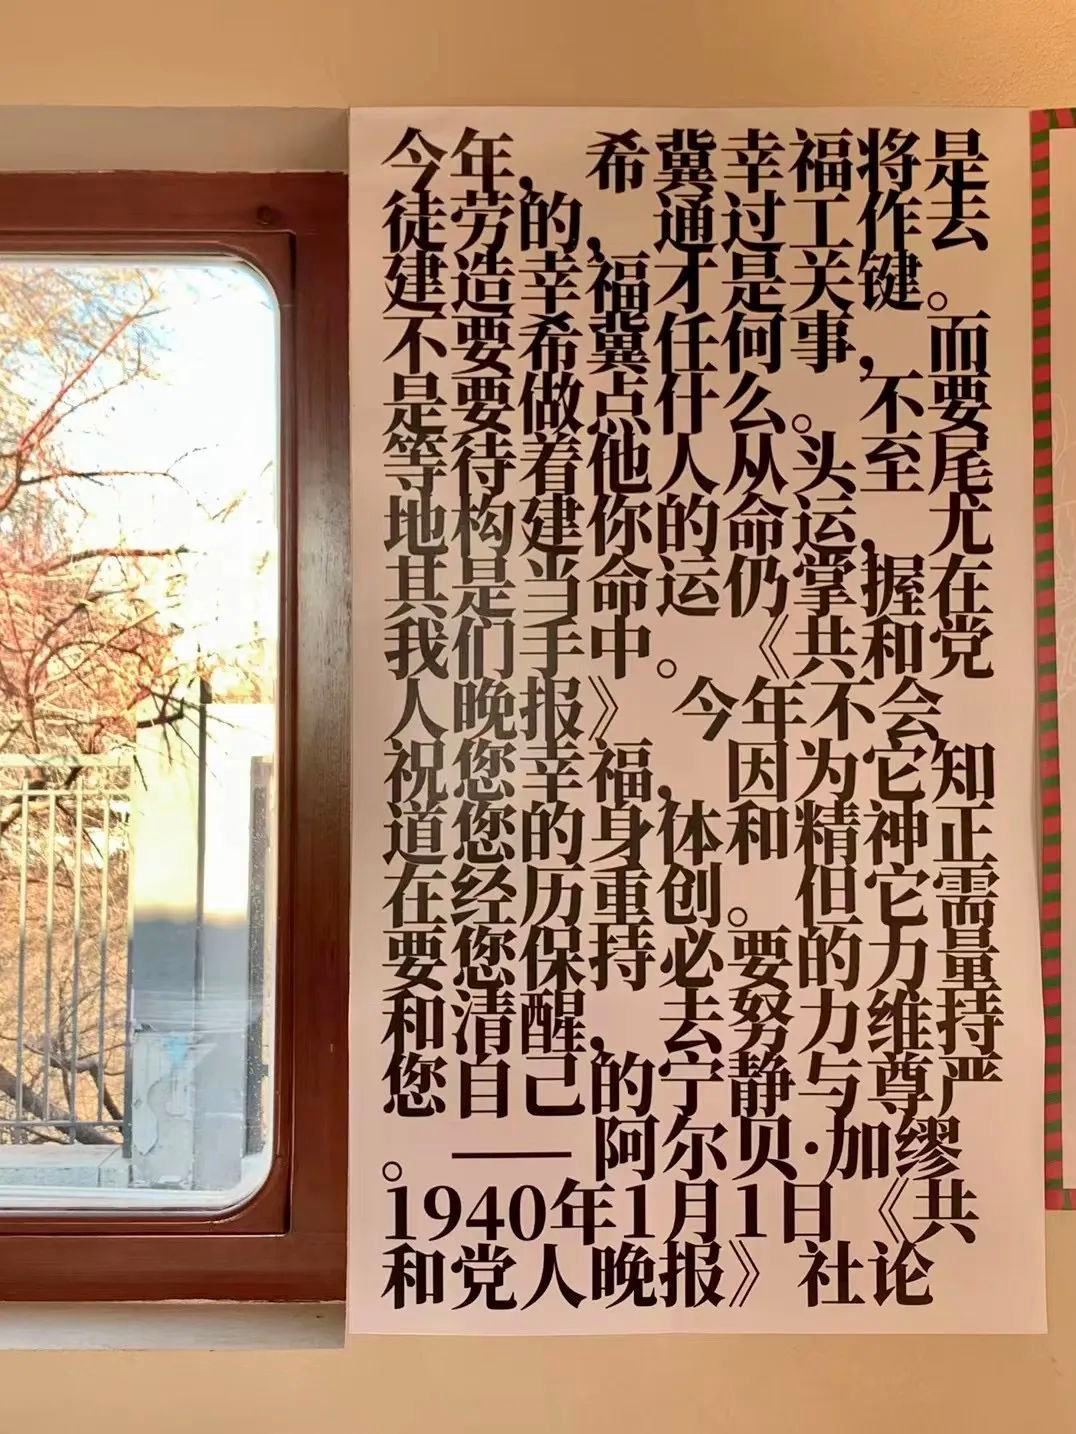 今年， 希冀幸福将是
徒劳的， 通过工作去
建造幸福才是关键。
不要希冀任何事，而
是要做点什么。不要
等待着他人从头至尾
地构建你的命运，尤
其是当命运仍掌握在
我们手中。《共和党
人晚报》今年不会
祝您幸福， 因为它知
道您的身体和精神正
在经历重创。但它需
要您保持必要的力量
和清醒， 去努力维持
您自己的宁静与尊严
。——阿尔贝·加缪
1940年1月1日《共
和党人晚报》社论